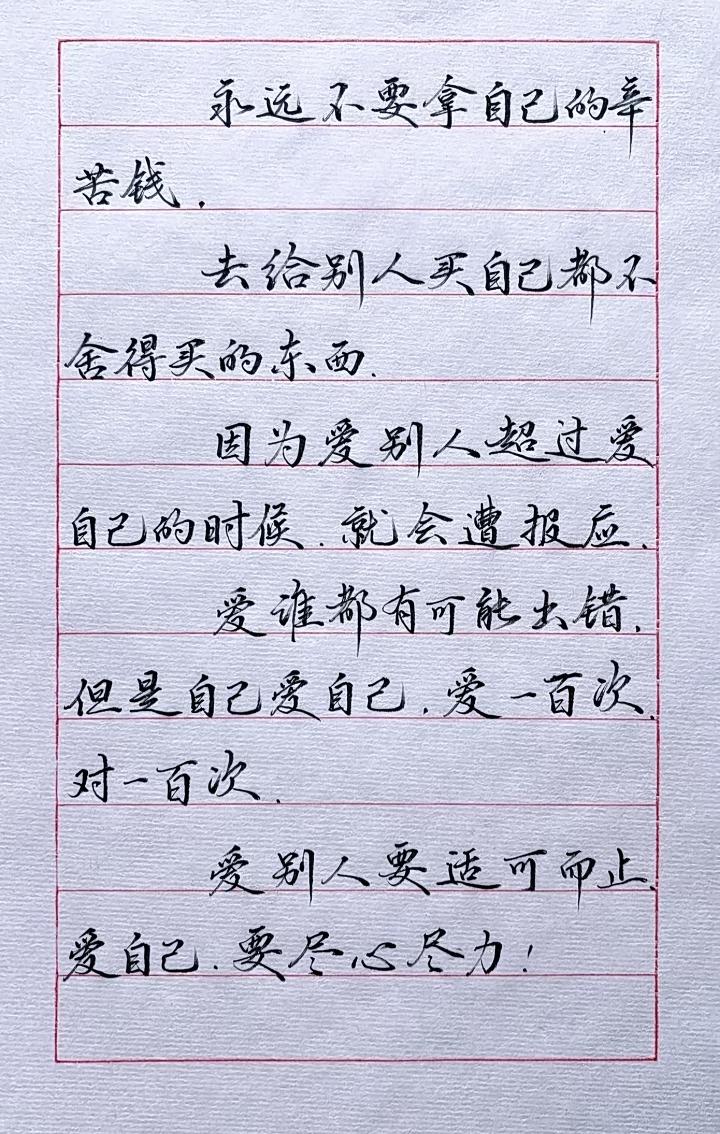 永远不要拿自己的辛
苦钱.
去给别人买自己都不
舍得买的东西.
因为爱别人超过爱
自己的时候.就会遭报应.
爱谁都有可能出错.
但是自己爱自己.爱一百次.
对一百次.
爱别人要适可而止.
爱自己.要尽心尽力!